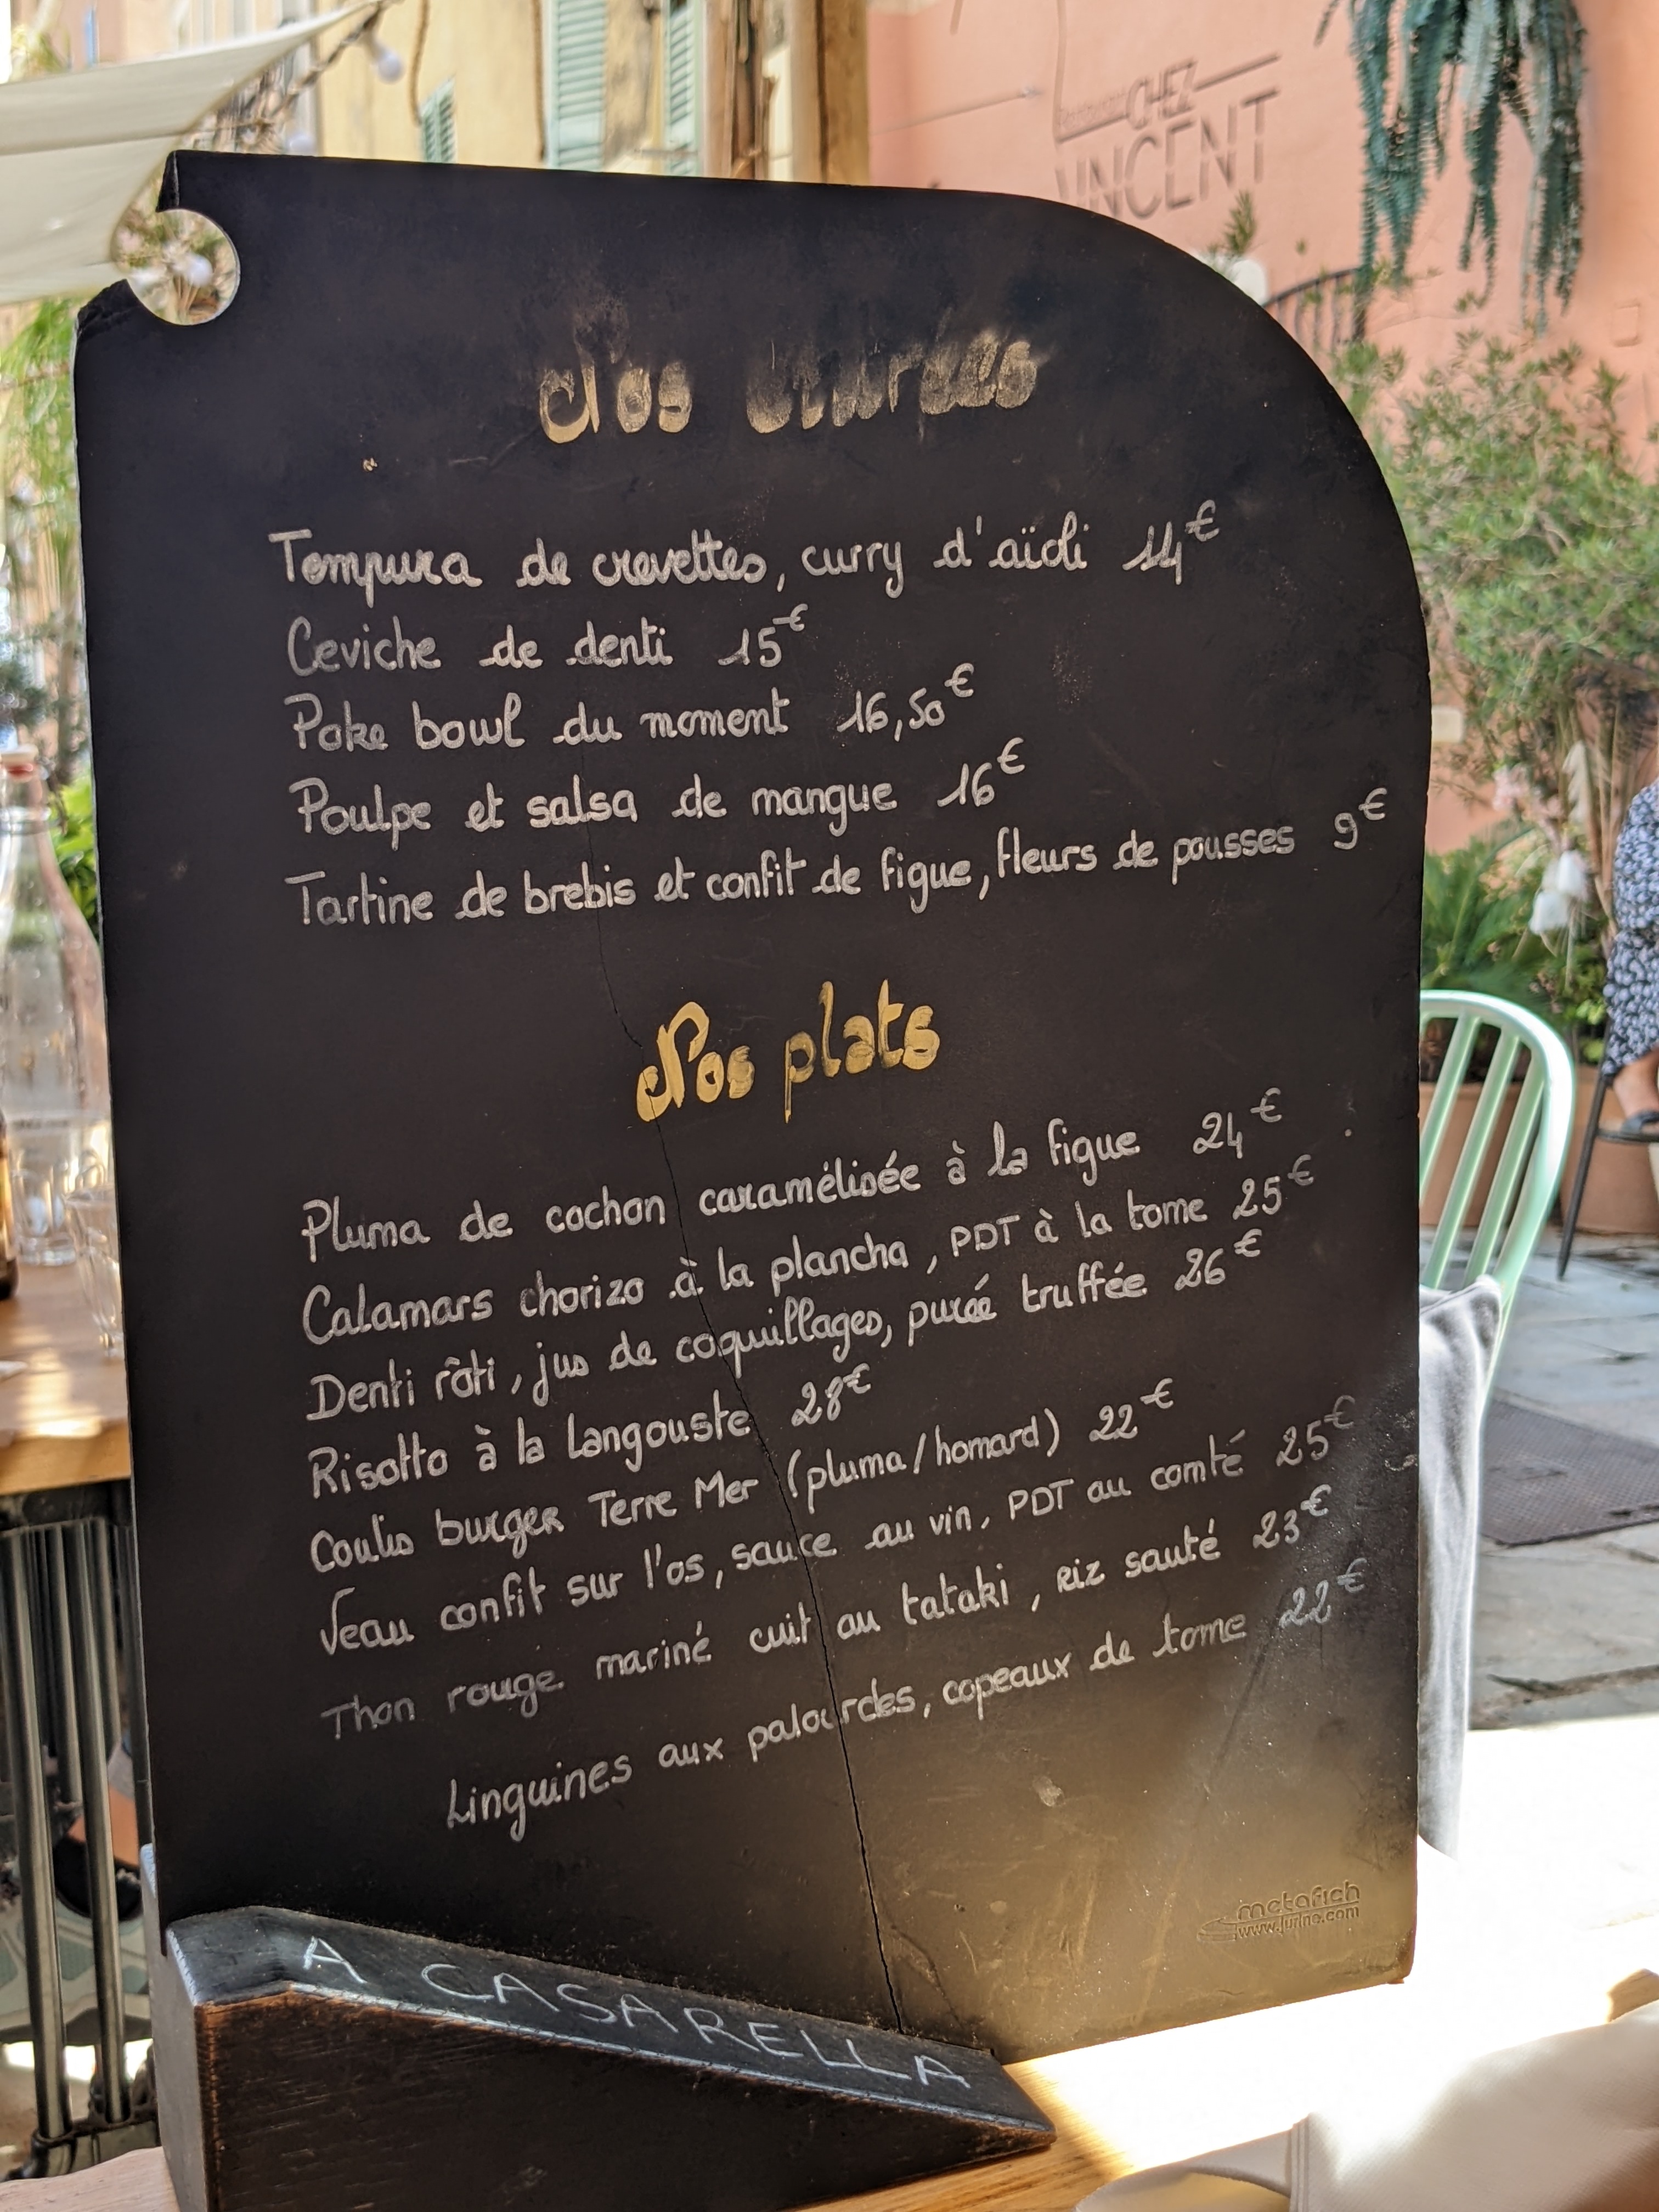 CHEZ
VINCENT
Nos entrées
Tempura de crevettes, curry d'aïoli 14€
Ceviche de denti 15€
Poke bowl du moment 16,50€
Poulpe et salsa de mangue 16€
Tartine de brebis et confit de figue, fleurs de pousses 9€
Nos plats
Pluma de cochon caramélisée à la figue 24€
Calamars chorizo à la plancha, PDT à la tome 25€
Denti rôti, jus de coquillages, purée truffée 26€
Risotto à la langouste 28€
Coulis burger Terre Mer (pluma/homard) 22€
Veau confit sur l'os, sauce au vin, PDT au comté 25€
Thon rouge mariné cuit au tataki, riz sauté 23€
Linguines aux palourdes, copeaux de tome 22€
metafich
www.jurine.com
A CASARELLA